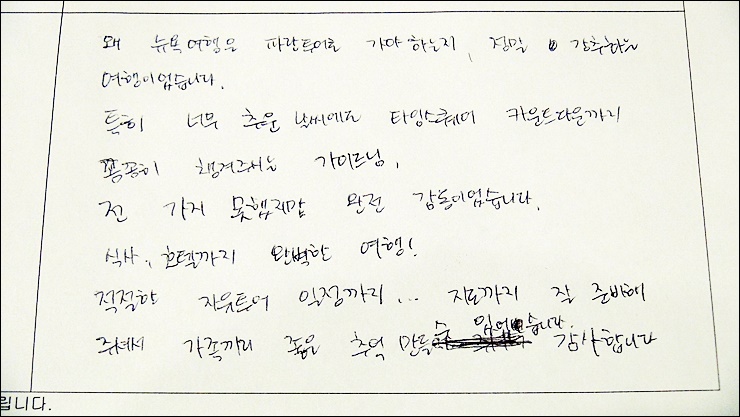 왜 뉴욕여행은 파란투어로 가야하는지, 정말 강추하는
여행이었습니다.
특히 너무 추운 날씨에도 타임스퀘어 카운트다운까지
꼼꼼히 챙겨주시는 가이드님,
전 가지 못했지만 완전 감동이었습니다.
식사, 호텔까지 완벽한 여행!
적절한 자유투어 일정까지... 지도까지 잘 준비해
주셔서 가족끼리 좋은 추억 만들 수 있었습니다. 감사합니다
립니다.